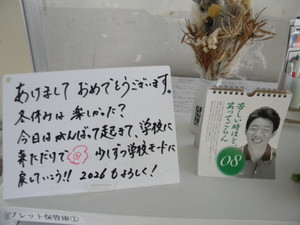 あけまして おめでとうございます。
冬休みは楽しかった？
今日はがんばって起きて、学校に
来ただけで 少しずつ学校モードに
戻していこう!! 2026もよろしく!
苦しい時ほど、
笑ってごらん
08
ブレット保管庫①